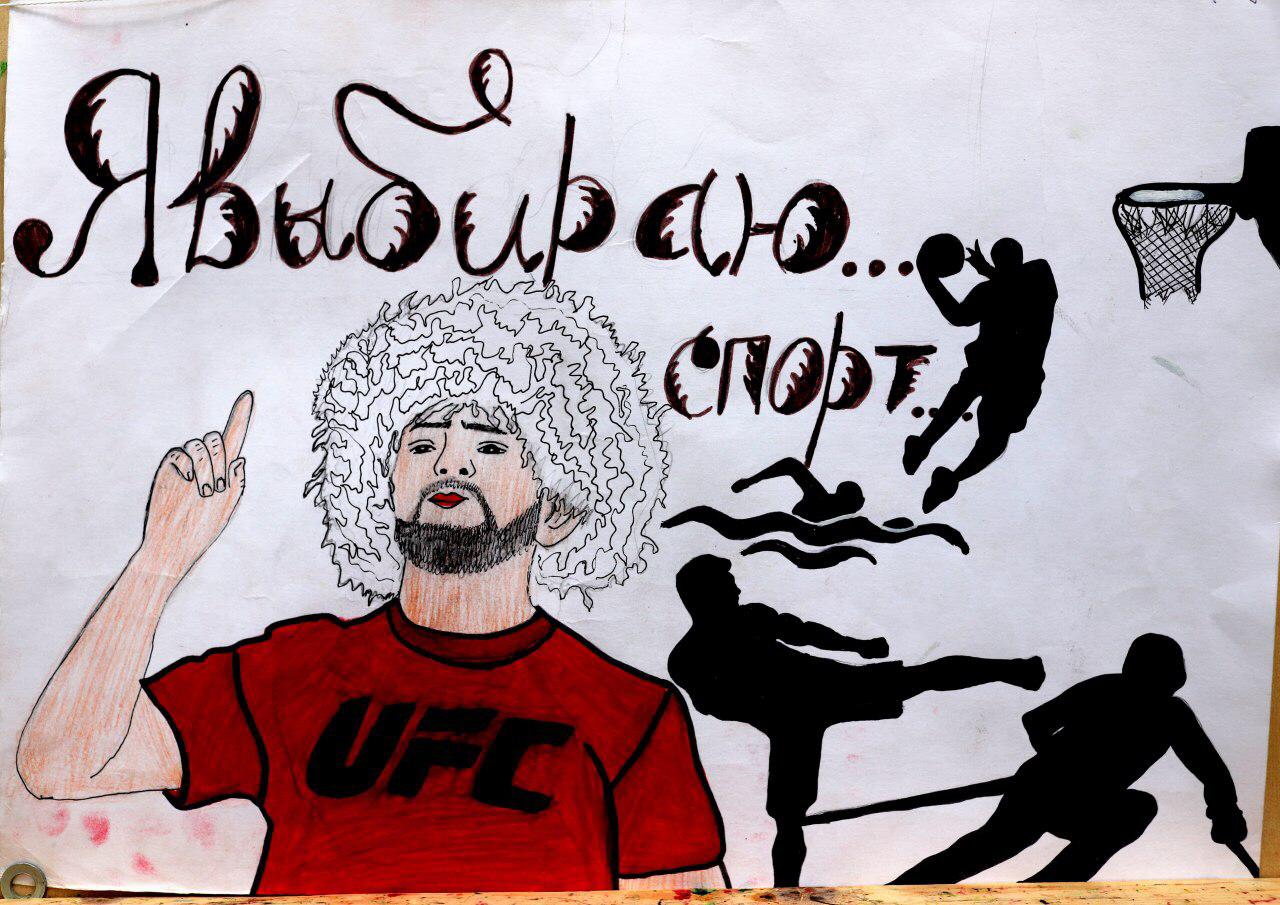 Я выбираю...
спорт...
UFC